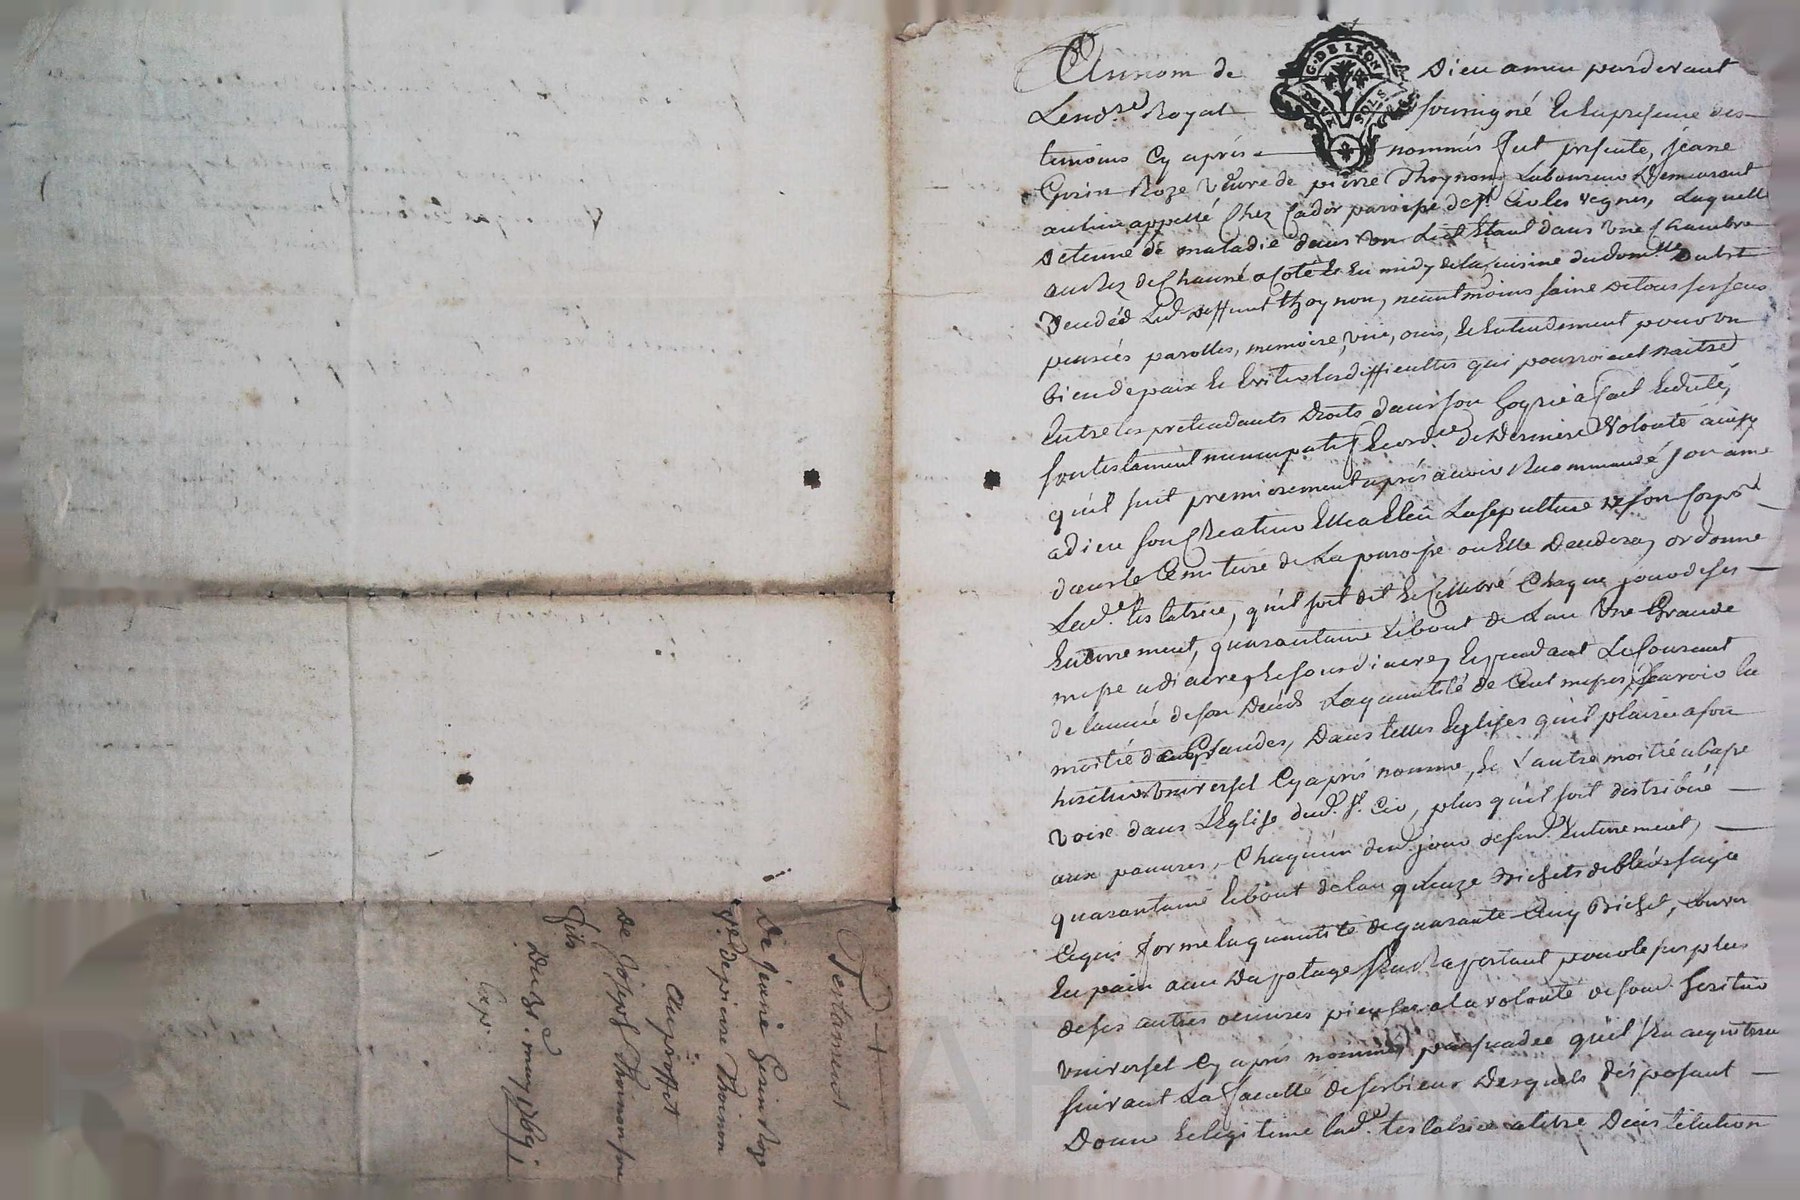 Testament
De jeanne Gerin Roze
vve. de pierre Thoinon
au proffet
de Joseph Thoinon son
fils
Du 31e. may 1769
Exp.
Au nom de Dieu amen pardevant
Le nore. Royal soussigné et En presence des
temoins Cy après nommés fut presente, jeane
Gerin Roze veuve de pierre Thoynon Laboureur Demeurant
au lieu appellé Chez Cador paroisse de st. Cir les vignes, Laquelle
detenue de maladie dans un Lict Etant dans une Chambre
au Rez de Chaussé a Coté et en midy de la Cuisine du dom.lle
Ledt. deffunt thoynon, neantmoins saine de tous ses sens
pensées parolles, memoire, vüe, ouie, et Entendement pour un
bien de paix et Eviter les difficultes qui pourroient naitre
Entre les pretendants droits dans son hoyrie à fait
son testament nuncupatif et ordre. de derniere volonté ainsy
qu'il suit premierement après avoir Recommandé son ame
a dieu son Createur Elle a Eleu La sepulture de son Corps
dans le Cemetiere de La paroisse ou Elle decedera, ordonne
Lade. testatrice, qu'il soit dit et Cellebré Chaque jour de ses
Enterrement, quarantaine et bout de L'an Une Grande
messe a diacre, et sousdiacre, Et pendant Le Courant
de l'année de son Decés La quantité de Cent messes, Sçavoir la
moitié de Grandes, Dans telles Eglises qu'il plaira a son
heritier universel Cy après nommé, Et L'autre moitié a basse
voix dans L'Eglise dud. st. Cir, plus qu'il soit distribué
aux pauvres, Chaqu'un des jour de sond. Enterrement,
quarantaine Et bout de l'an quinze Bichets de bled seigle
Ce qui forme la quantité de quarante Cinq Bichet,
En pain avec Du potage S'en Raportant pour le surplus
de ses autres oeuvres pieuses a la volonté de sond. heritier
universel Cy après nommé, persuadée qu'il s'en acquittera
suivant La faculté de ses biens Desquels disposant
Donne et legue lad. testatrice a titre D'institution